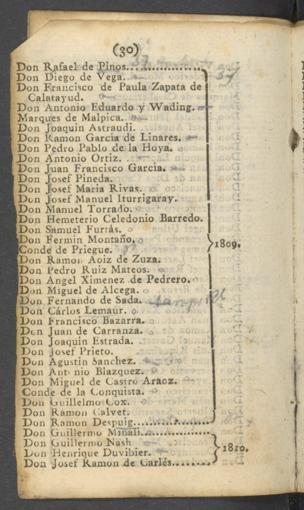 (30)
Don Rafael de Pinos
Don Diego de Vega.
Don Francisco de Paula Zapata de
Calatayud.
Don Antonio Eduardo y Wading.
Marques de Malpica.
Don Joaquin Astraudi.
Don Ramon Garcia de Linares.
Don Pedro Pablo de la Hoya.
Don Antonio Ortiz.
Don Juan Francisco Garcia.
Don Josef Pineda.
Don Josef Maria Rivas.
Don Josef Manuel Iturrigaray.
Don Manuel Torrado.
Don Hemeterio Celedonio Barredo.
Don Samuel Furrás.
Don Fermin Montaño.
Conde de Priegue. 1809.
Don Ramon Aoiz de Zuza.
Don Pedro Ruiz Mateos.
Don Angel Ximenez de Pedrero.
Don Miguel de Alcega.
Don Fernando de Sada.
Don Cárlos Lemaur.
Don Francisco Bazarra.
Don Juan de Carranza.
Don Joaquin Estrada.
Don Josef Prieto.
Don Agustin Sanchez.
Don Antonio Blazquez.
Don Miguel de Castro Araoz.
Conde de la Conquista.
Don Guillelmo Cox.
Don Ramon Calvet.
Don Ramon Despuig
Don Guillermo Minali
Don Guillermo Nash
Don Henrique Duvibier. 1810.
Don Josef Ramon de Carlés